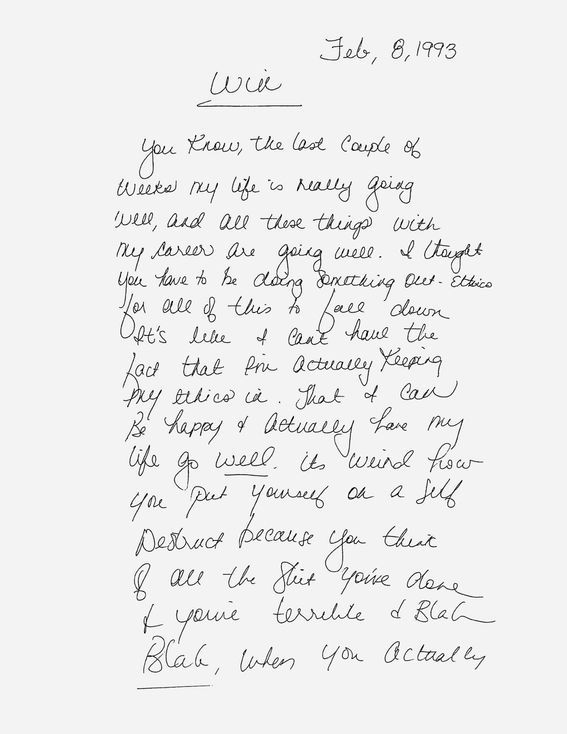 Feb, 8, 1993
Win
You Know, the last Couple of
Weeks my life is really going
well, and all these things with
my career are going well. I thought
you have to be doing something out-Ethics
for all of this to fall down
It's like I cant have the
fact that I'm actually keeping
my ethics in. That I can
Be happy & actually have my
life go well. its weird how
you put yourself on a self
Destruct because you think
of all the shit you've done
& you're terrible & Blah
Blah, when you actually